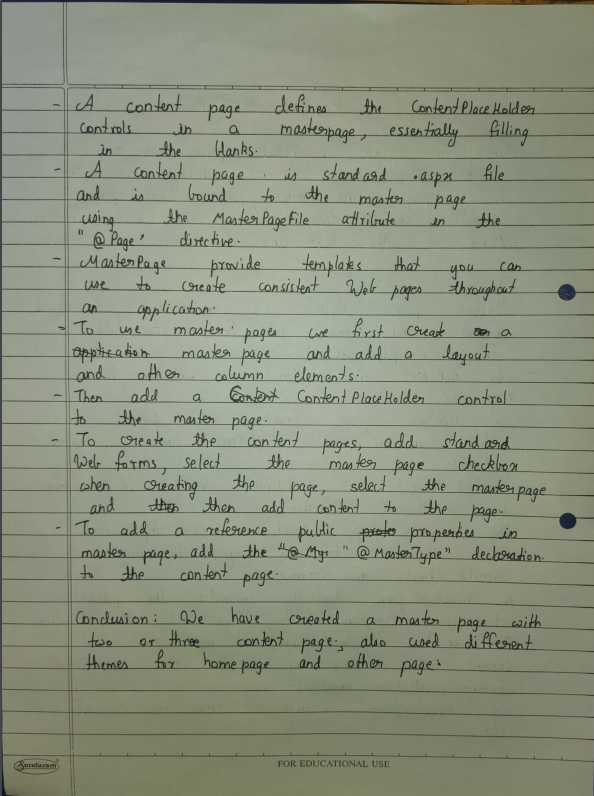 - A content page defines the ContentPlaceHolder
controls in a masterpage, essentially filling
in the blanks.
- A content page is standard .aspx file
and is bound to the master page
using the MasterPageFile attribute in the
"@Page" directive.
- MasterPage provide templates that you can
use to create consistent Web pages throughout
an application.
- To use master pages we first create a
application master page and add a layout
and other column elements.
- Then add a Content ContentPlaceHolder control
to the master page.
- To create the content pages, add standard
Web forms, select the master page checkbox
when creating the page, select the masterpage
and then then add content to the page.
- To add a reference public properties in
master page, add the "@My "@MasterType" declaration.
to the content page.
Conclusion: We have created a master page with
two or three content page, also used different
themes for home page and other page.
Sundaram
FOR EDUCATIONAL USE